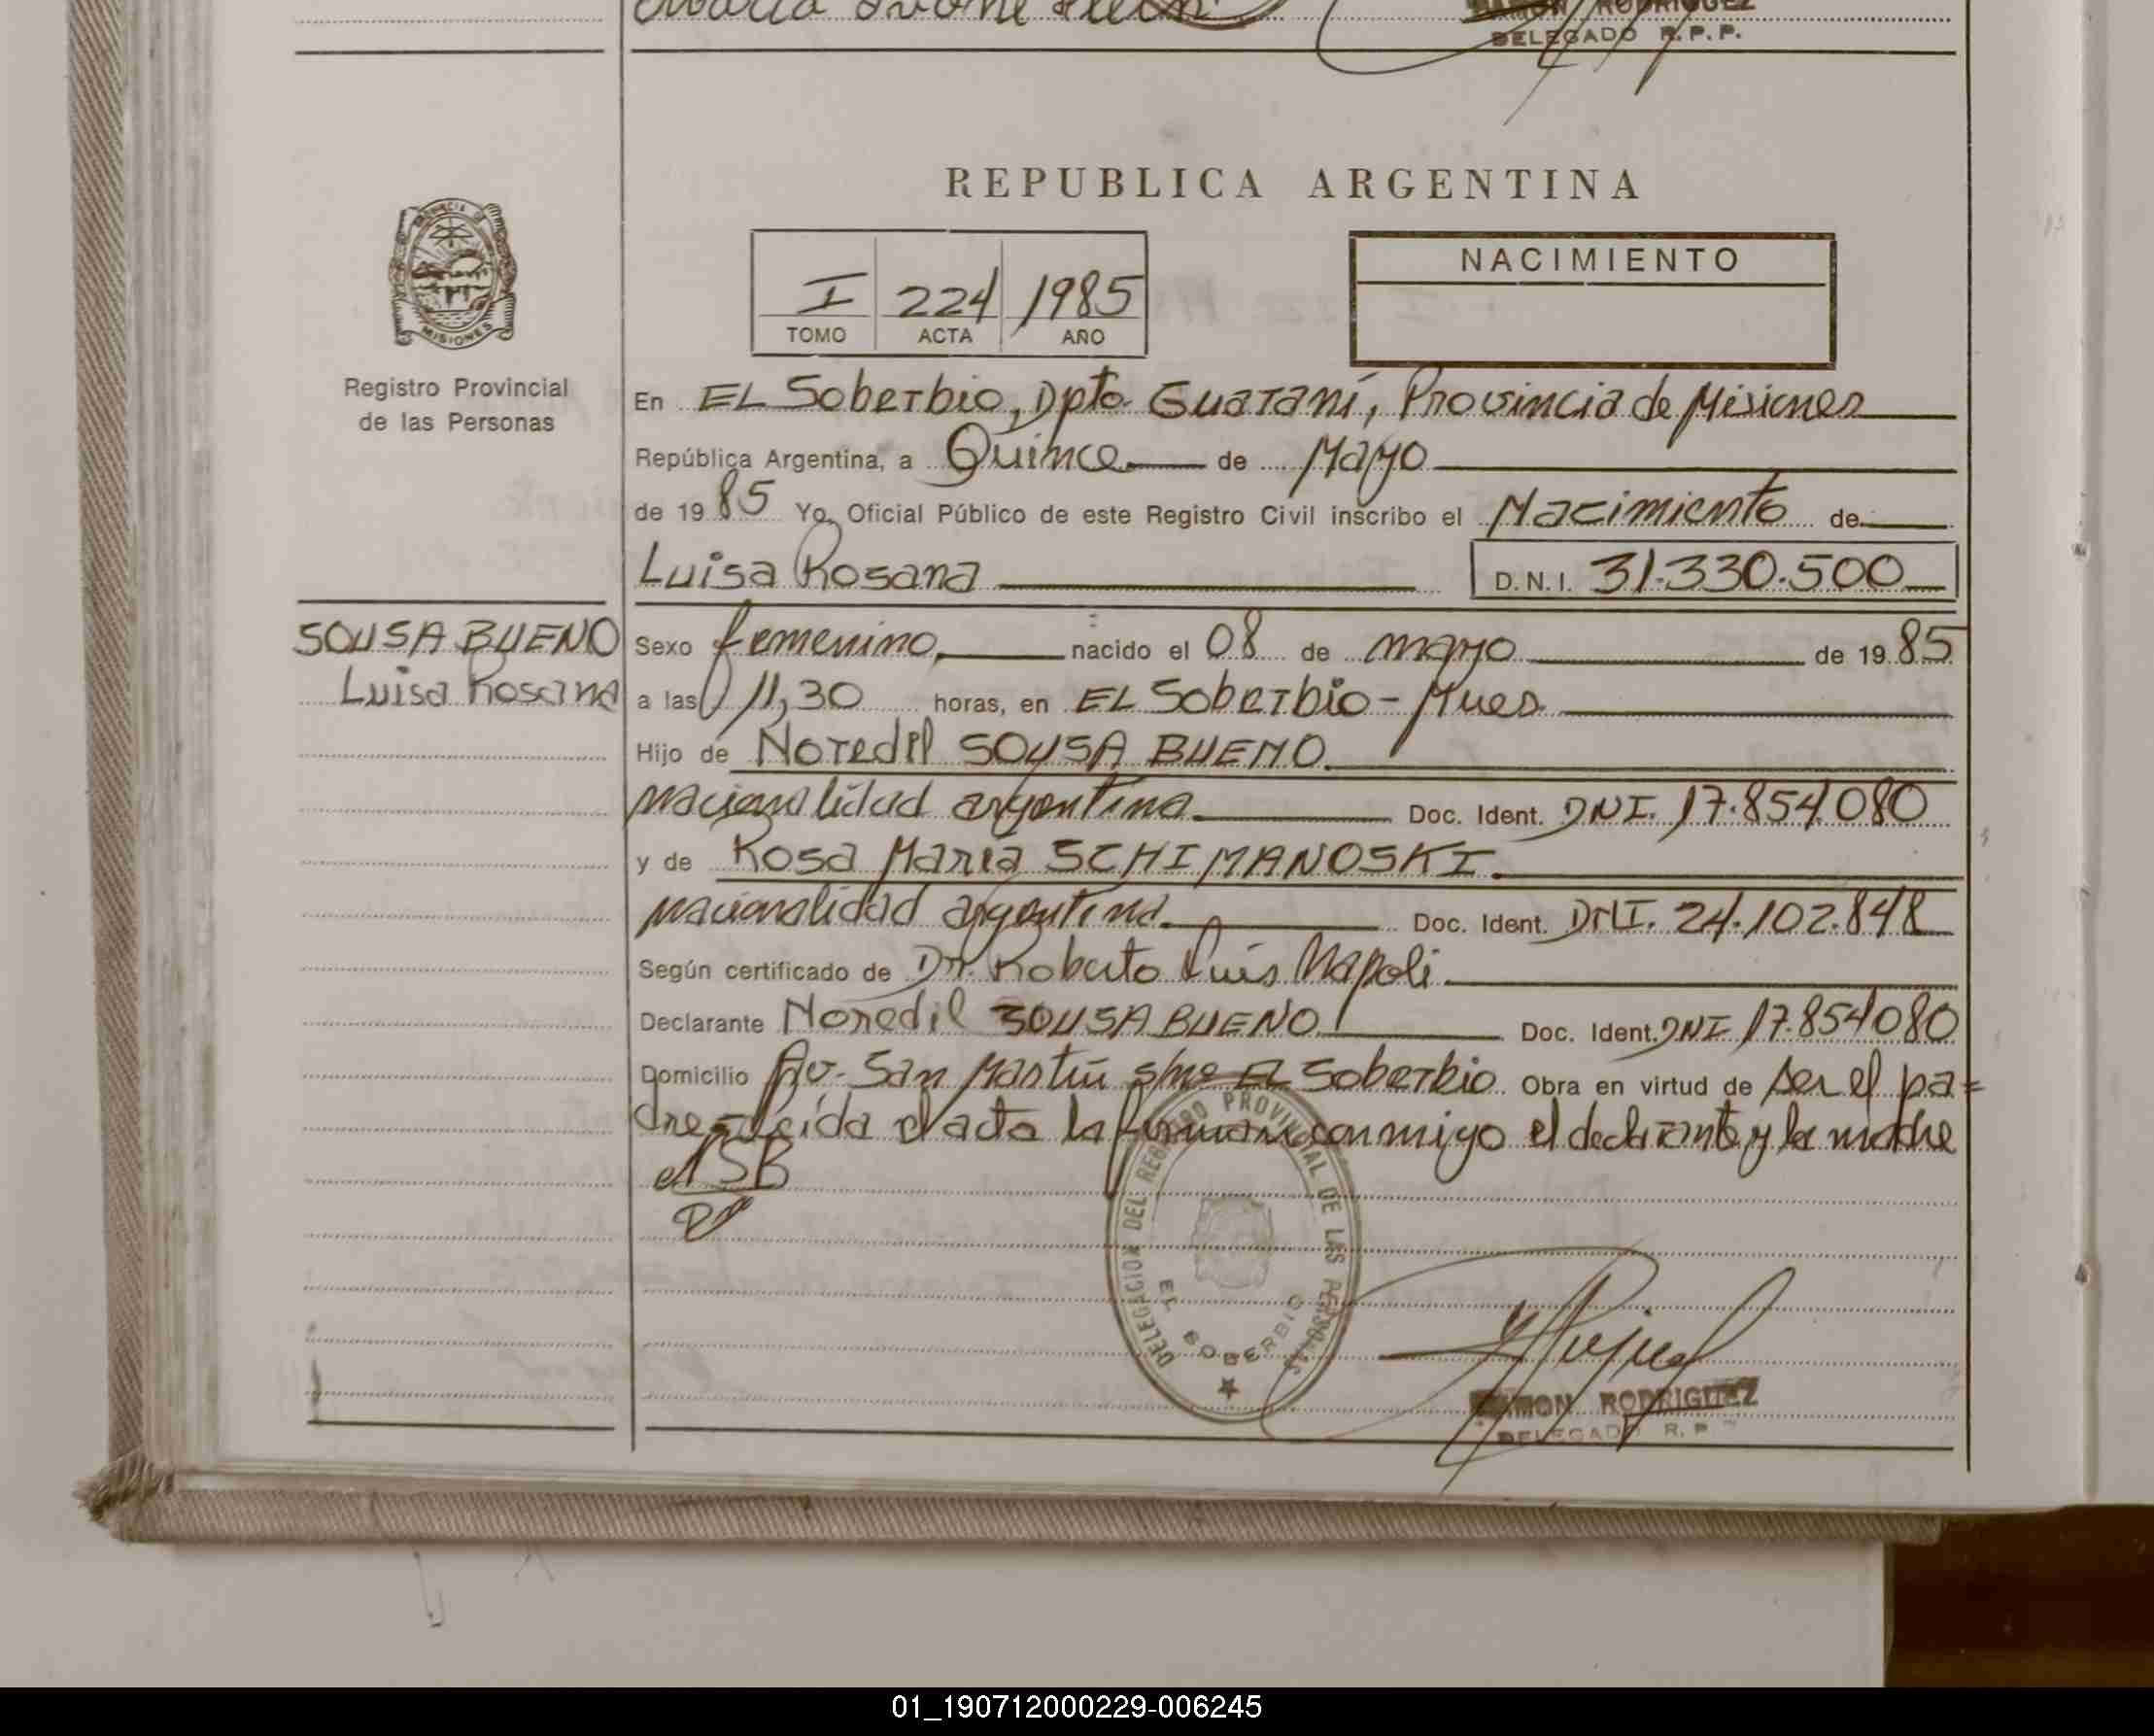 RAMON RODRIGUEZ
DELEGADO R.P.P.
REPUBLICA ARGENTINA
PROVINCIA DE
MISIONES
Registro Provincial
de las Personas
I 224 1985
TOMO ACTA AÑO
NACIMIENTO
En EL Soberbio, Dpto. Guaraní, Provincia de Misiones
República Argentina, a Quince de Mayo
de 1985 Yo, Oficial Público de este Registro Civil inscribo el Nacimiento de
Luisa Rosana D.N.I. 31.330.500
SOUSA BUENO
Luisa Rosana
Sexo femenino, nacido el 08 de mayo de 1985
a las 11,30 horas, en EL Soberbio - Mnes
Hijo de Noredil SOUSA BUENO.
nacionalidad argentina. Doc. Ident. DNI. 17.854.080
y de Rosa Maria SCHIMANOSKI.
nacionalidad argentina. Doc. Ident. DNI. 24.102.848
Según certificado de Dr. Roberto Luis Napoli.
Declarante Noredil SOUSA BUENO. Doc. Ident. DNI 17.854080
Domicilio Av. San Martín s/nº EL Soberbio Obra en virtud de ser el pa=
dre - Leída el acta la firman conmigo el declarante y la madre
NSB
DELEGACION DEL REGISTRO PROVINCIAL DE LAS PERSONAS
EL SOBERBIO
RAMON RODRIGUEZ
DELEGADO R. P.
01_190712000229-006245